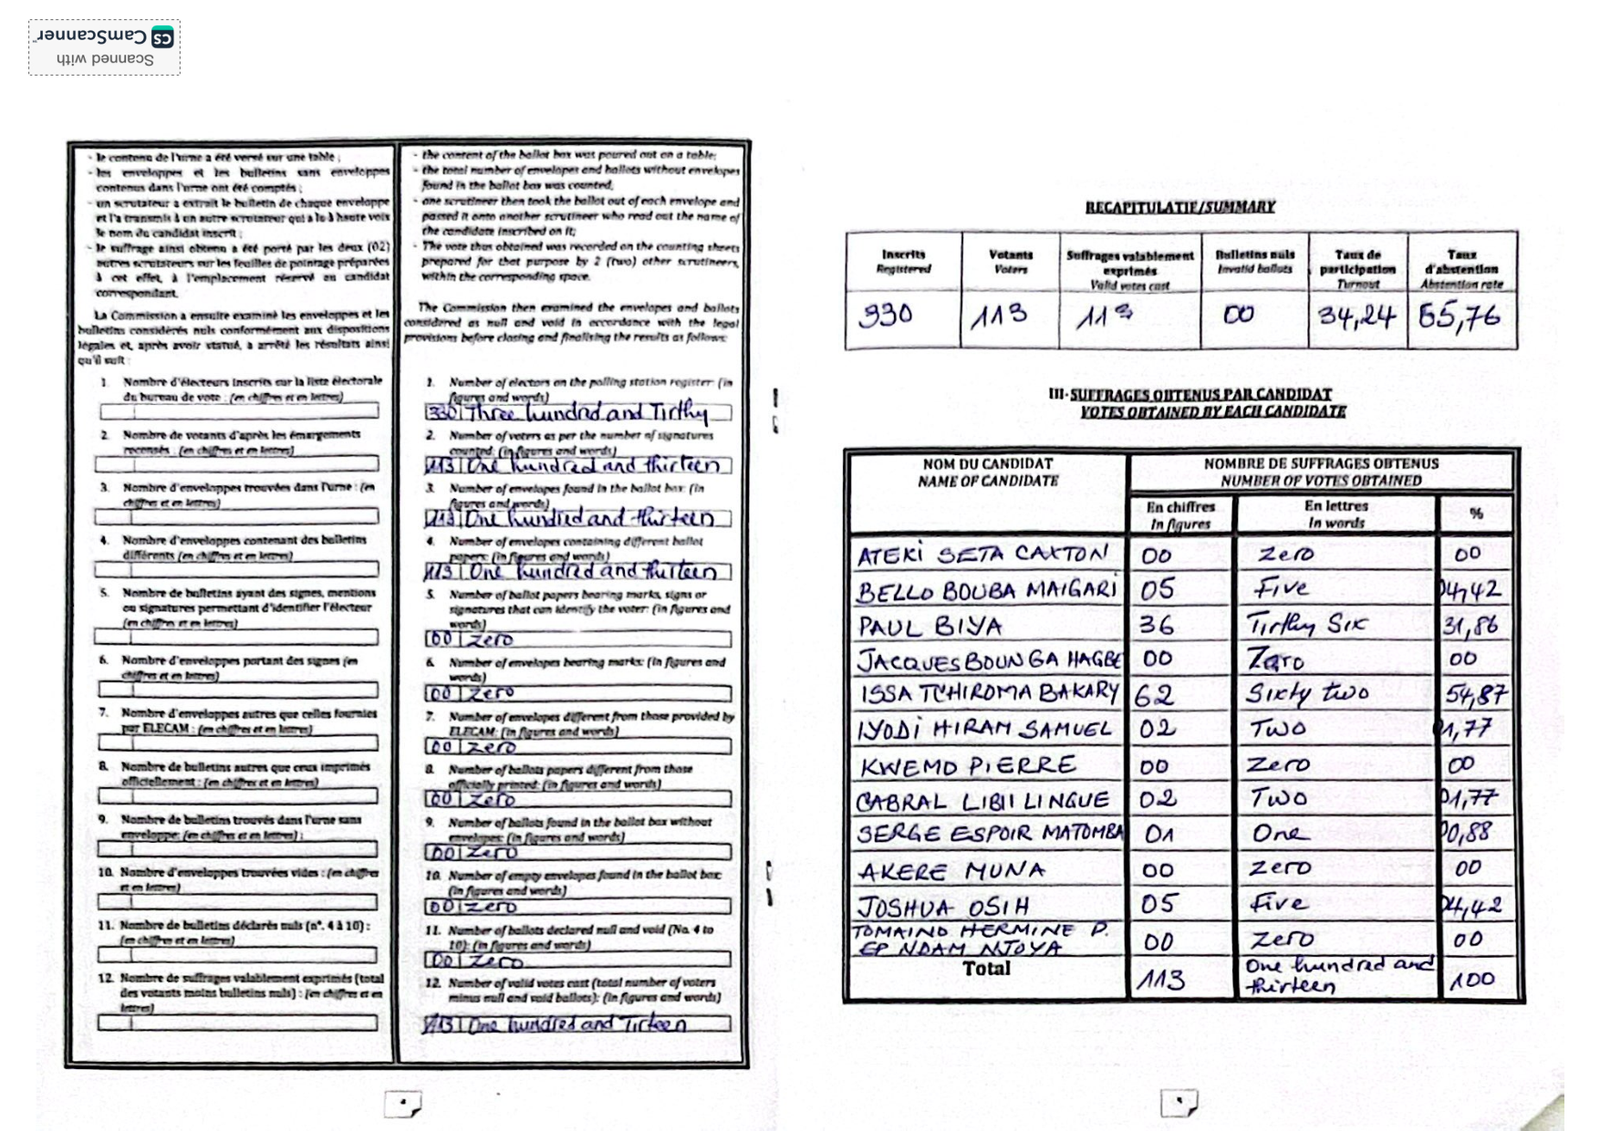 Scanned with
CamScanner
- le contenu de l'urne a été versé sur une table ;
- les enveloppes et les bulletins sans enveloppes
contenus dans l'urne ont été comptés ;
- un scrutateur a extrait le bulletin de chaque enveloppe
et l'a transmis à un autre scrutateur qui a lu à haute voix
le nom du candidat inscrit ;
- le suffrage ainsi obtenu a été porté par les deux (02)
autres scrutateurs sur les feuilles de pointage préparées
à cet effet, à l'emplacement réservé au candidat
correspondant.
La Commission a ensuite examiné les enveloppes et les
bulletins considérés nuls conformément aux dispositions
légales et, après avoir statué, a arrêté les résultats ainsi
qu'il suit :
1. Nombre d'électeurs inscrits sur la liste électorale
du bureau de vote : (en chiffres et en lettres)
2. Nombre de votants d'après les émargements
recensés : (en chiffres et en lettres)
3. Nombre d'enveloppes trouvées dans l'urne : (en
chiffres et en lettres)
4. Nombre d'enveloppes contenant des bulletins
différents (en chiffres et en lettres)
5. Nombre de bulletins ayant des signes, mentions
ou signatures permettant d'identifier l'électeur
(en chiffres et en lettres)
6. Nombre d'enveloppes portant des signes (en
chiffres et en lettres)
7. Nombre d'enveloppes autres que celles fournies
par ELECAM : (en chiffres et en lettres)
8. Nombre de bulletins autres que ceux imprimés
officiellement : (en chiffres et en lettres)
9. Nombre de bulletins trouvés dans l'urne sans
enveloppe: (en chiffres et en lettres) :
10. Nombre d'enveloppes trouvées vides : (en chiffres
et en lettres)
11. Nombre de bulletins déclarés nuls (n°. 4 à 10) :
(en chiffres et en lettres)
12. Nombre de suffrages valablement exprimés (total
des votants moins bulletins nuls) : (en chiffres et en
lettres)
- the content of the ballot box was poured out on a table;
- the total number of envelopes and ballots without envelopes
found in the ballot box was counted;
- one scrutineer then took the ballot out of each envelope and
passed it onto another scrutineer who read out the name of
the candidate inscribed on it;
- The vote thus obtained was recorded on the counting sheets
prepared for that purpose by 2 (two) other scrutineers,
within the corresponding space.
The Commission then examined the envelopes and ballots
considered as null and void in accordance with the legal
provisions before closing and finalising the results as follows:
1. Number of electors on the polling station register: (in
figures and words)
330 Three hundred and Tirthy
2. Number of voters as per the number of signatures
counted: (in figures and words)
113 One hundred and thirteen
3. Number of envelopes found in the ballot box: (in
figures and words)
113 One hundred and thirteen
4. Number of envelopes containing different ballot
papers: (in figures and words)
113 One hundred and thirteen
5. Number of ballot papers bearing marks, signs or
signatures that can identify the voter: (in figures and
words)
00 Zero
6. Number of envelopes bearing marks: (in figures and
words)
00 Zero
7. Number of envelopes different from those provided by
ELECAM: (in figures and words)
00 Zero
8. Number of ballots papers different from those
officially printed: (in figures and words)
00 Zero
9. Number of ballots found in the ballot box without
envelopes: (in figures and words)
00 Zero
10. Number of empty envelopes found in the ballot box:
(in figures and words)
00 Zero
11. Number of ballots declared null and void (No. 4 to
10): (in figures and words)
00 Zero
12. Number of valid votes cast (total number of voters
minus null and void ballots): (in figures and words)
113 One hundred and Tirteen
RECAPITULATIF/SUMMARY
Inscrits Registered Votants Voters Suffrages valablement exprimés Valid votes cast Bulletins nuls Invalid ballots Taux de participation Turnout Taux d'abstention Abstention rate
330 113 113 00 34,24 65,76
III- SUFFRAGES OBTENUS PAR CANDIDAT
VOTES OBTAINED BY EACH CANDIDATE
NOM DU CANDIDAT NOMBRE DE SUFFRAGES OBTENUS
NAME OF CANDIDATE NUMBER OF VOTES OBTAINED
En chiffres En lettres %
In figures In words
ATEKI SETA CAXTON 00 Zero 00
BELLO BOUBA MAIGARI 05 Five 04,42
PAUL BIYA 36 Tirthy Six 31,86
JACQUES BOUNGA HAGBE 00 Zero 00
ISSA TCHIROMA BAKARY 62 Sixty two 54,87
IYODI HIRAM SAMUEL 02 Two 01,77
KWEMO PIERRE 00 Zero 00
CABRAL LIBII LINGUE 02 Two 01,77
SERGE ESPOIR MATOMBA 01 One 00,88
AKERE MUNA 00 Zero 00
JOSHUA OSIH 05 Five 04,42
TOMAINO HERMINE P.
EP NDAM NJOYA 00 Zero 00
Total 113 One hundred and thirteen 100